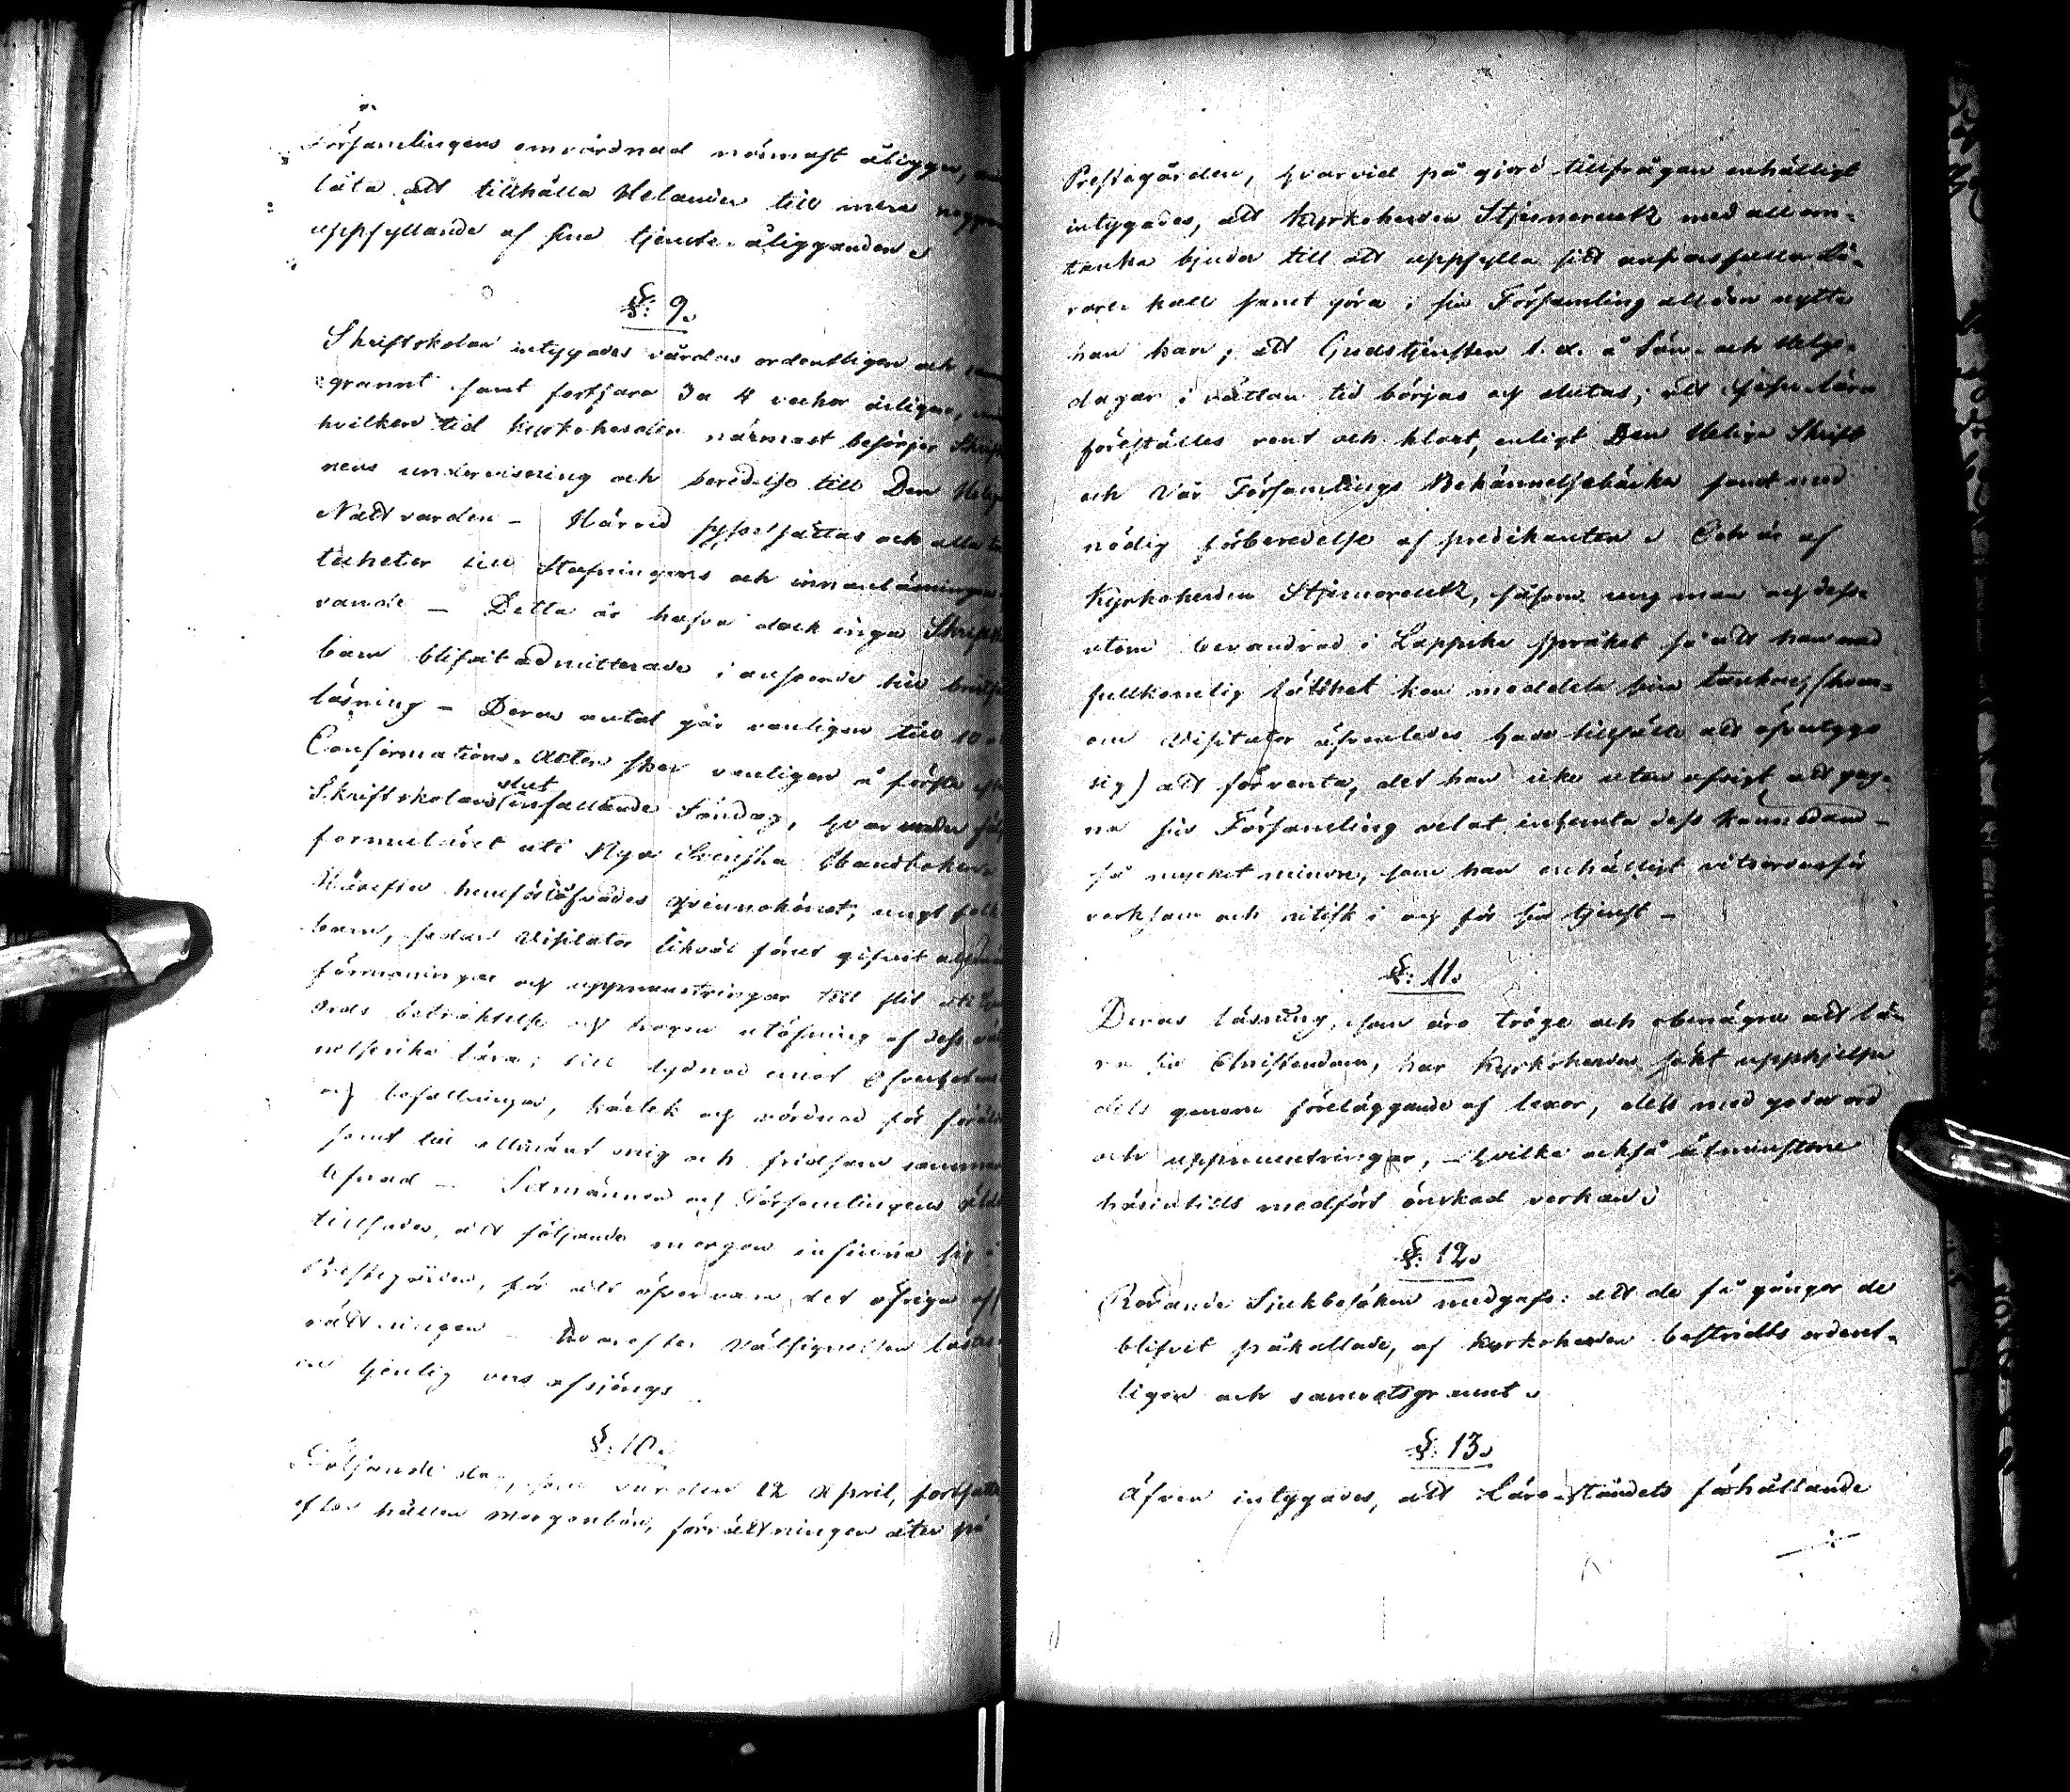 Församlingens omvårdnad närmast åligger,
låta att tillhålla Helander till mera
uppfyllande af sina tjenste-åligganden.
§: 9.
Skriftskolan intygades vårdas ordentligen och
grannt samt fortfara 3 a 4 vechor årligen,
hvilken tid Kyrkoherden närmast besörjer
nens undervisning och beredelse till Den Helga
Nattvarden - Härvid sysselsättas och alla
till Stafningens och innanläsningens
vande - Detta år hafva dock inga
barn blifvit admitterade i anseende till
läsning - Deras antal går vanligen till 10
Confirmations-Acten sker vanligen å första
Skriftskolans slut infallande Söndag, hvarunder
formuläret uti Nya Svenska Handboken
Härefter hemförlöfvades qvinnokönet, ungt folk
barn, sedan Visitator likväl först gifvit
förmaningar och uppmuntringar till flit uti
Ords betraktelse och trogen utöfning af dess
lära; till lydnad emot Öfverheten
och befallningar, kärlek och vördnad för
samt till allmänt enig och fridsam
lefnad - Sexmännen och Församlingens
tillsades, att följande morgon infinna sig i
Prestegården, för att öfvervara det öfriga af
rättningen - hvarefter Välsignelsen lästes
en tjenlig vers afsjöngs.
§: 10.
Följande dag, som var den 12 April, fortsattes
efter hållen Morgonbön, förrättningen åter på
Prestegården, hvarvid på gjord tillfrågan enhälligt
intygades, att Kyrkoherden Stjerncreutz med all om-
tanka bjuder till att uppfylla sitt ansvarsfulla Lä-
rare kall samt göra i sin Församling all den nytta
han kan; att Gudstjensten t. d. å Sön- och Helge-
dagar i rättan tid börjas och slutas; att Jesu lära
föreställes rent och klart, enligt Den Heliga Skrift
och Vår Församlings Bekännelseböcker samt med
nödig förberedelse af predikanten. Och är af
Kyrkoherden Stjerncreutz, såsom ung man och dess-
utom bevandrad i Lappska språket så att han med
fullkomlig lätthet kan meddela sina tankar, (hvar-
om Visitator äfvenledes hade tillfälle att öfvertyga
sig) att förvänta, det han icke utan afsigt att gag-
na sin Församling velat inhemta dess kännedom -
så mycket mindre, som han enhälligt vitsordas för
verksam och nitisk i och för sin tjenst -
§: 11.
Deras läsning, som äro tröge och obenägne att lä-
ra sin Christendom, har Kyrkoherden sökt upphjelpa
dels genom föreläggande af lexor, dels med goda ord
och uppmuntringar, - hvilka också åtminstone
härintills medfört önskad verkan.
§: 12.
Rörande Sjukbesöken medgafs: att de få gånger de
blifvit påkallade, af Kyrkoherden bestridts ordent-
ligen och samvetsgrannt.
§: 13.
Äfven intygades, att Läro-ståndets förhållande